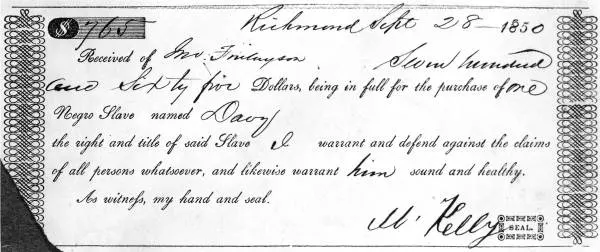 $765 Richmond Sept 28 - 1850
Received of Jno. Finlayson Seven hundred
and Sixty five Dollars, being in full for the purchase of one
Negro Slave named Davy
the right and title of said Slave I warrant and defend against the claims
of all persons whatsoever, and likewise warrant him sound and healthy.
As witness, my hand and seal.
M' Kelly SEAL.